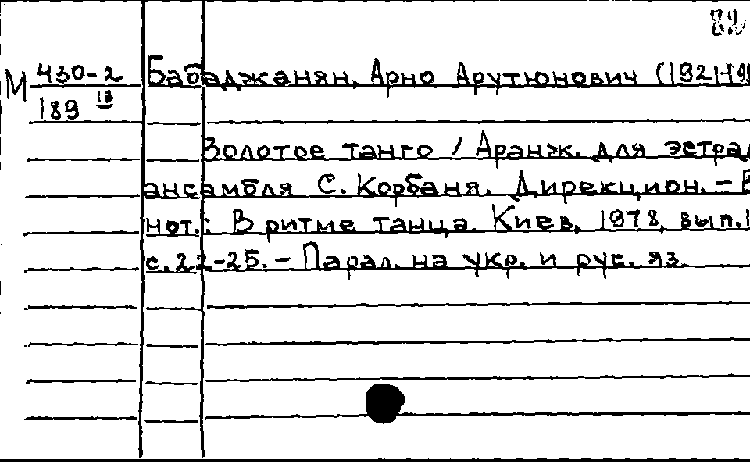 М 430-2 Бабаджанян, Арно Арутюнович (1921-
189 18
Золотое танго / Аранж. для эстрад
ансамбля С. Корбаня. Дирекцион. - В
нот.: В ритме танца. Киев, 1978, вып.1
с.22-25. - Парал. на укр. и рус. яз.